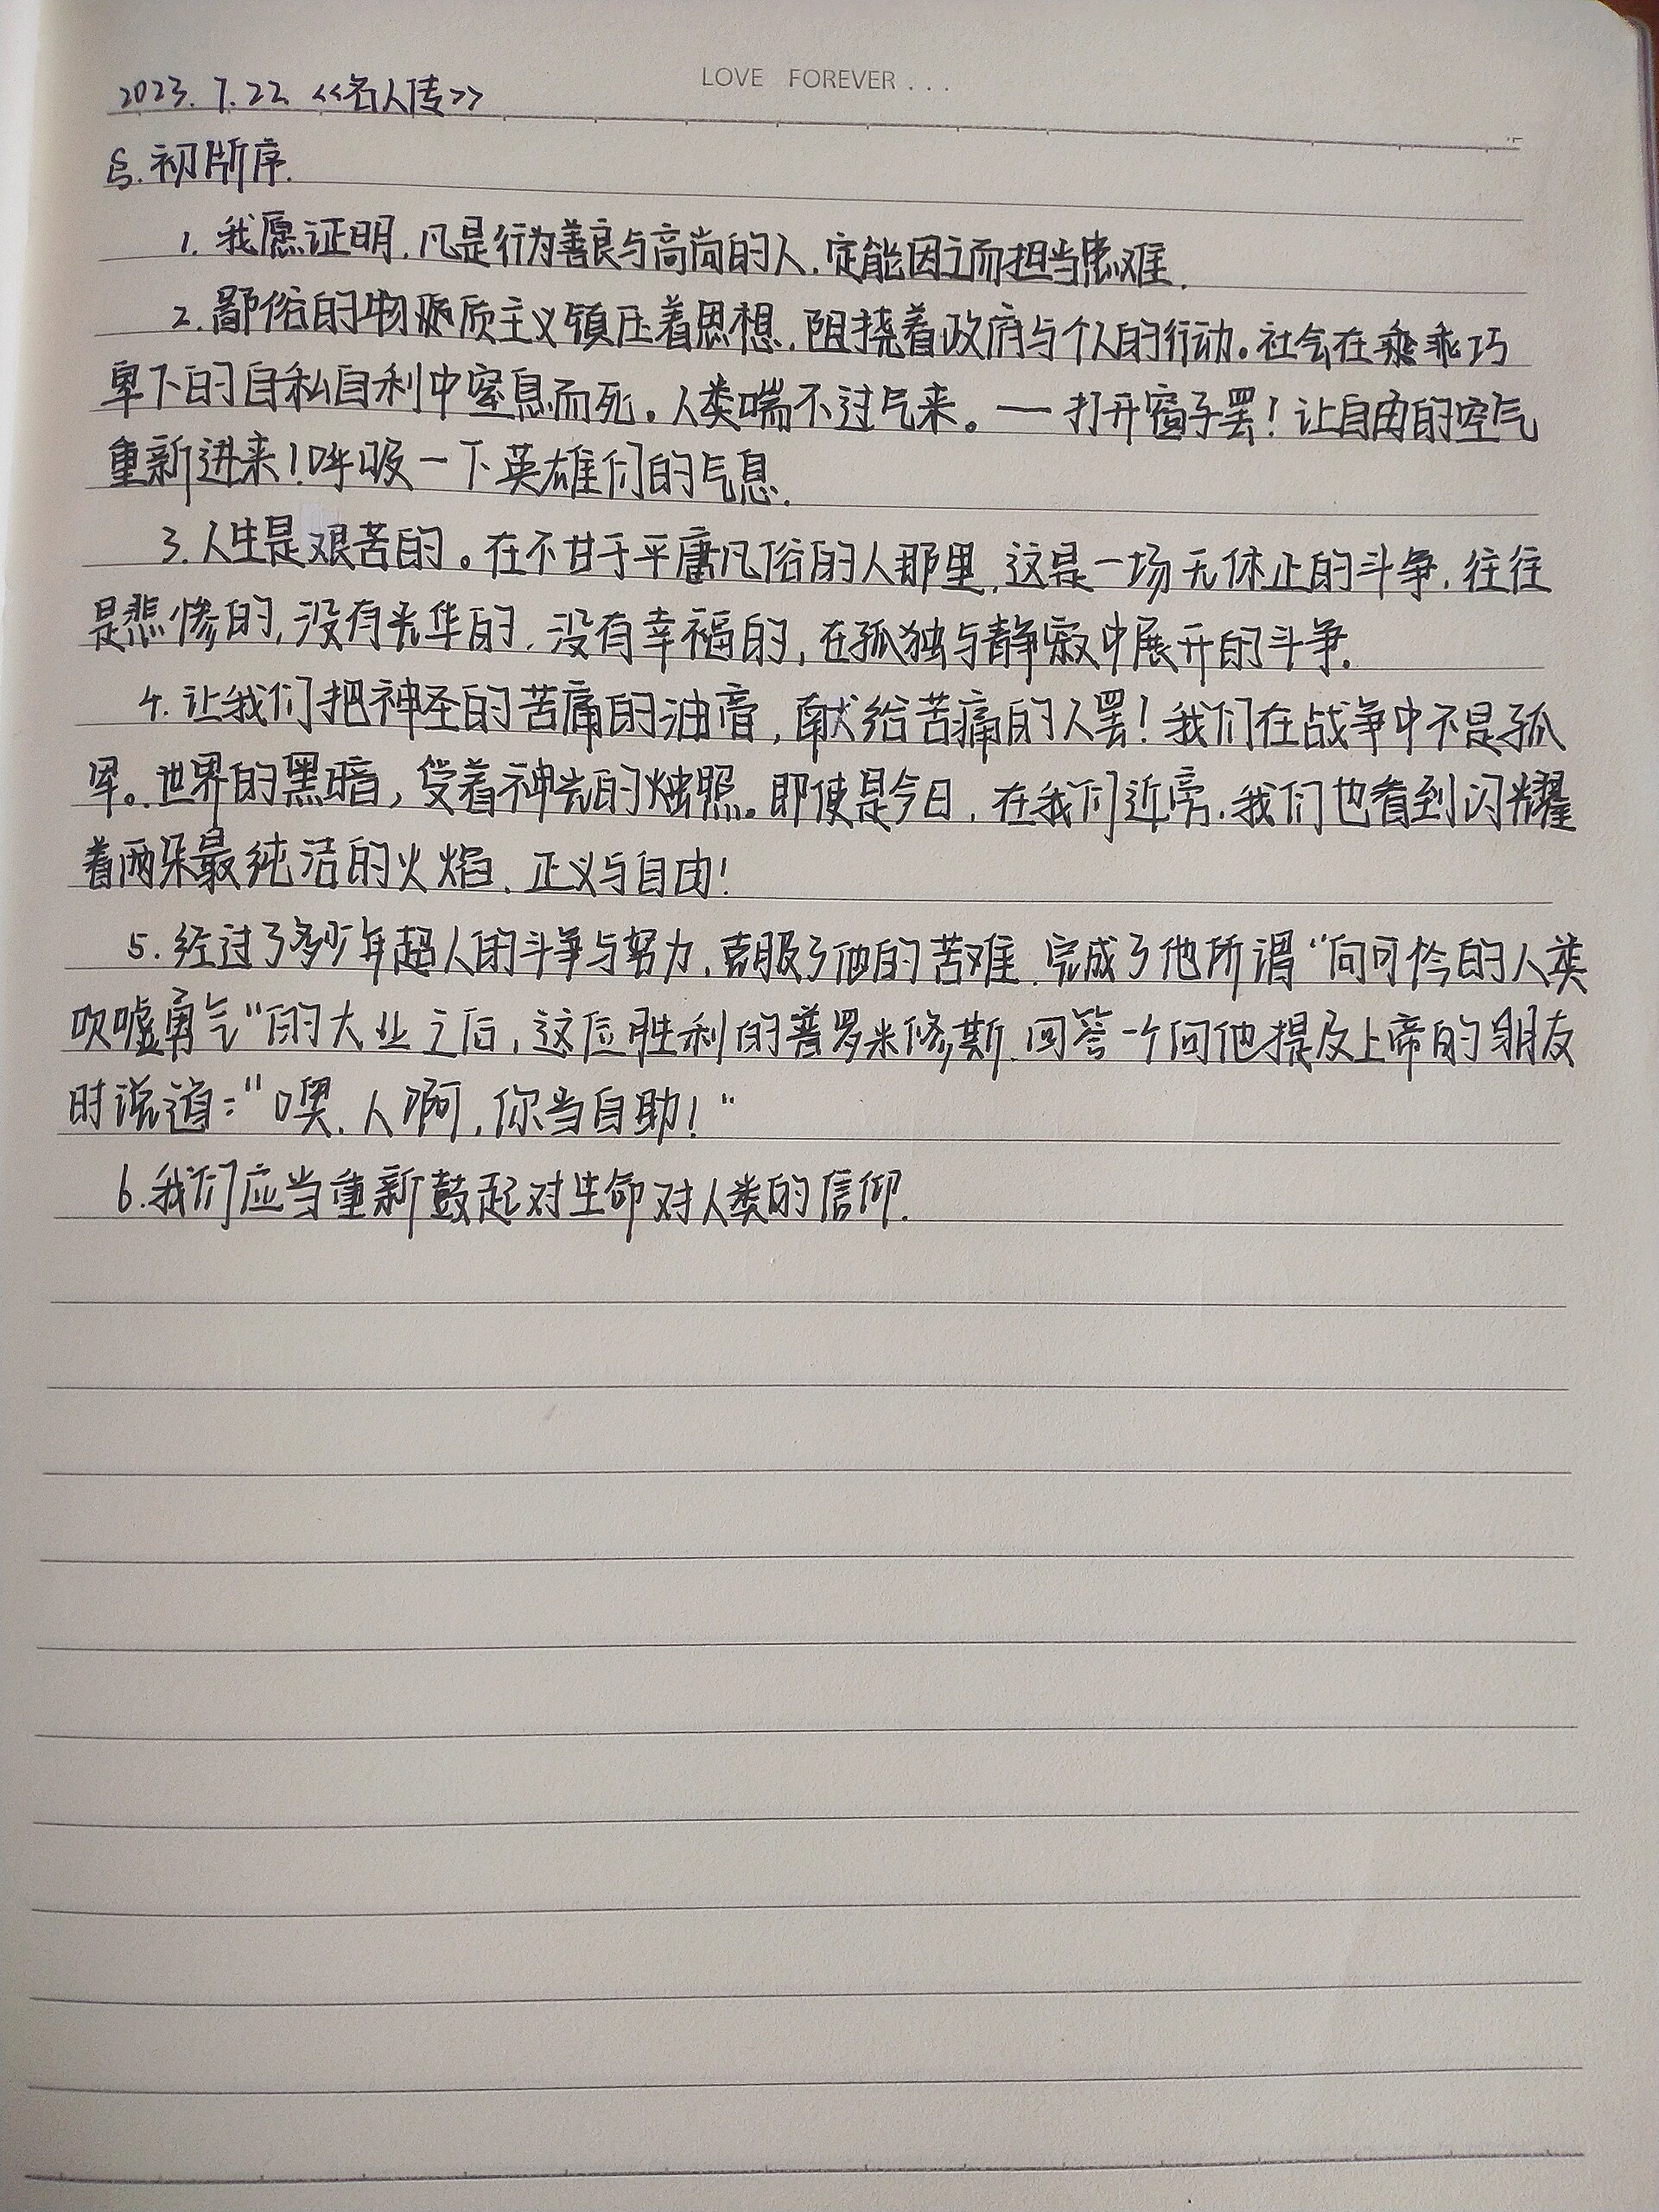 LOVE FOREVER...
2023.7.22 <<名人传>>
初版序.
1. 我愿证明,凡是行为善良与高尚的人,定能因之而担当患难.
2. 鄙俗的物质主义镇压着思想,阻挠着政府与个人的行动。社会在乖乖巧
卑下的自私自利中窒息而死。人类喘不过气来。— 打开窗子罢!让自由的空气
重新进来!呼吸一下英雄们的气息.
3. 人生是艰苦的。在不甘于平庸凡俗的人那里,这是一场无休止的斗争,往往
是悲惨的,没有光华的,没有幸福的,在孤独与静寂中展开的斗争.
4. 让我们把神圣的苦痛的油膏,献给苦痛的人罢!我们在战争中不是孤
军。世界的黑暗,受着神光的烛照。即使是今日,在我们近旁,我们也看到闪耀
着两朵最纯洁的火焰,正义与自由!
5. 经过了多少年超人的斗争与努力,克服了他的苦难,完成了他所谓“向可怜的人类
吹嘘勇气"的大业之后,这位胜利的普罗米修斯,回答一个向他提及上帝的朋友
时说道:"噢,人啊,你当自助!"
6.我们应当重新鼓起对生命对人类的信仰.